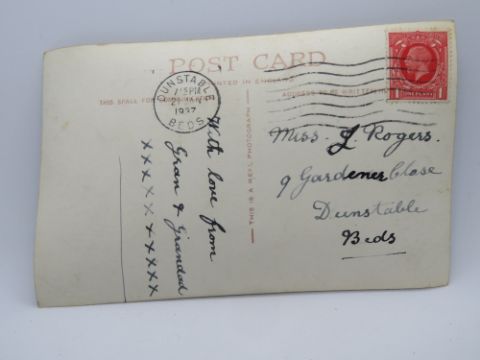 POST CARD
PRINTED IN ENGLAND
THIS SPACE FOR
ADDRESS TO BE WRITTEN
DUNSTABLE
PM
1937
BEDS
ONE PENNY
1 1
THIS IS A REAL PHOTOGRAPH
With love from
Gran & Grandad
X X X X X X X X X
Miss. J. Rogers.
9 Gardener Close
Dunstable
Beds